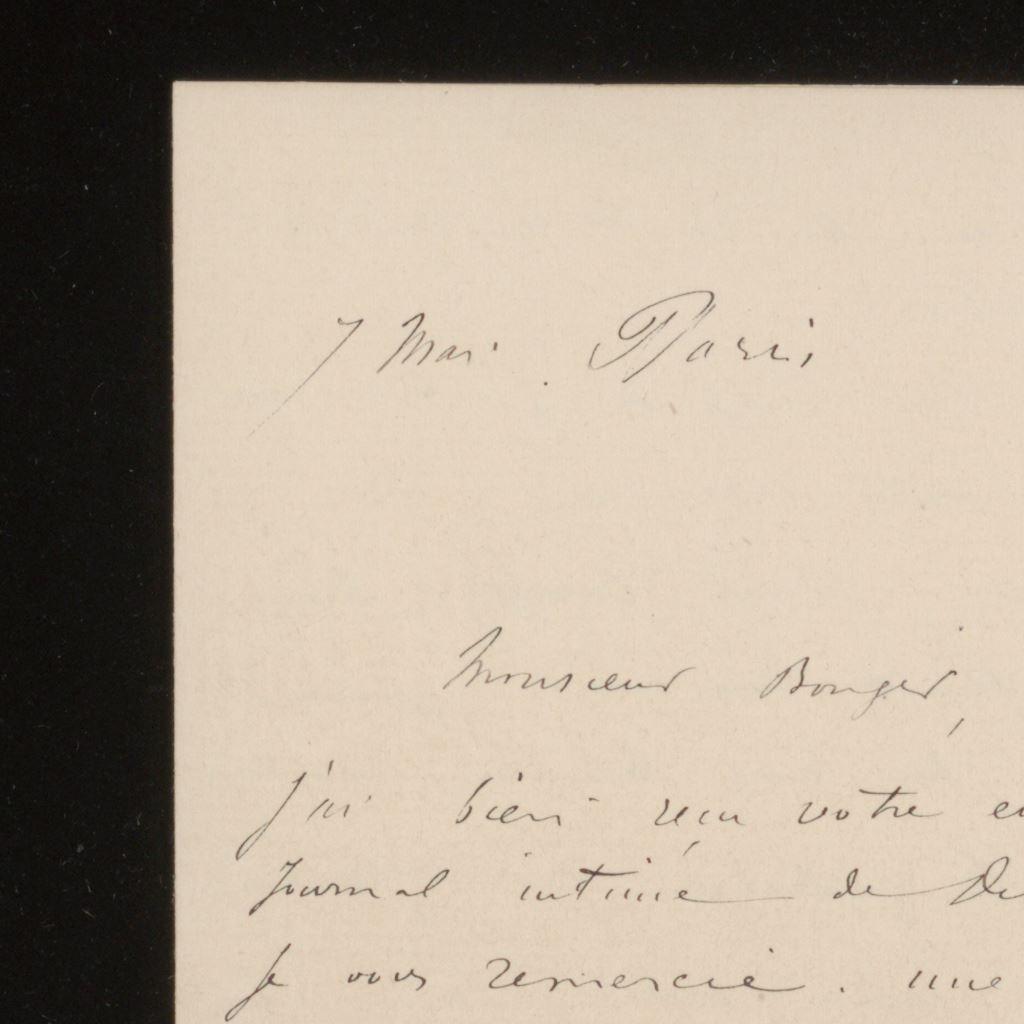 7 Mai . Paris
Monsieur Bonger,
j'ai bien reçu votre en
Journal intime de De
Je vous remercie. une